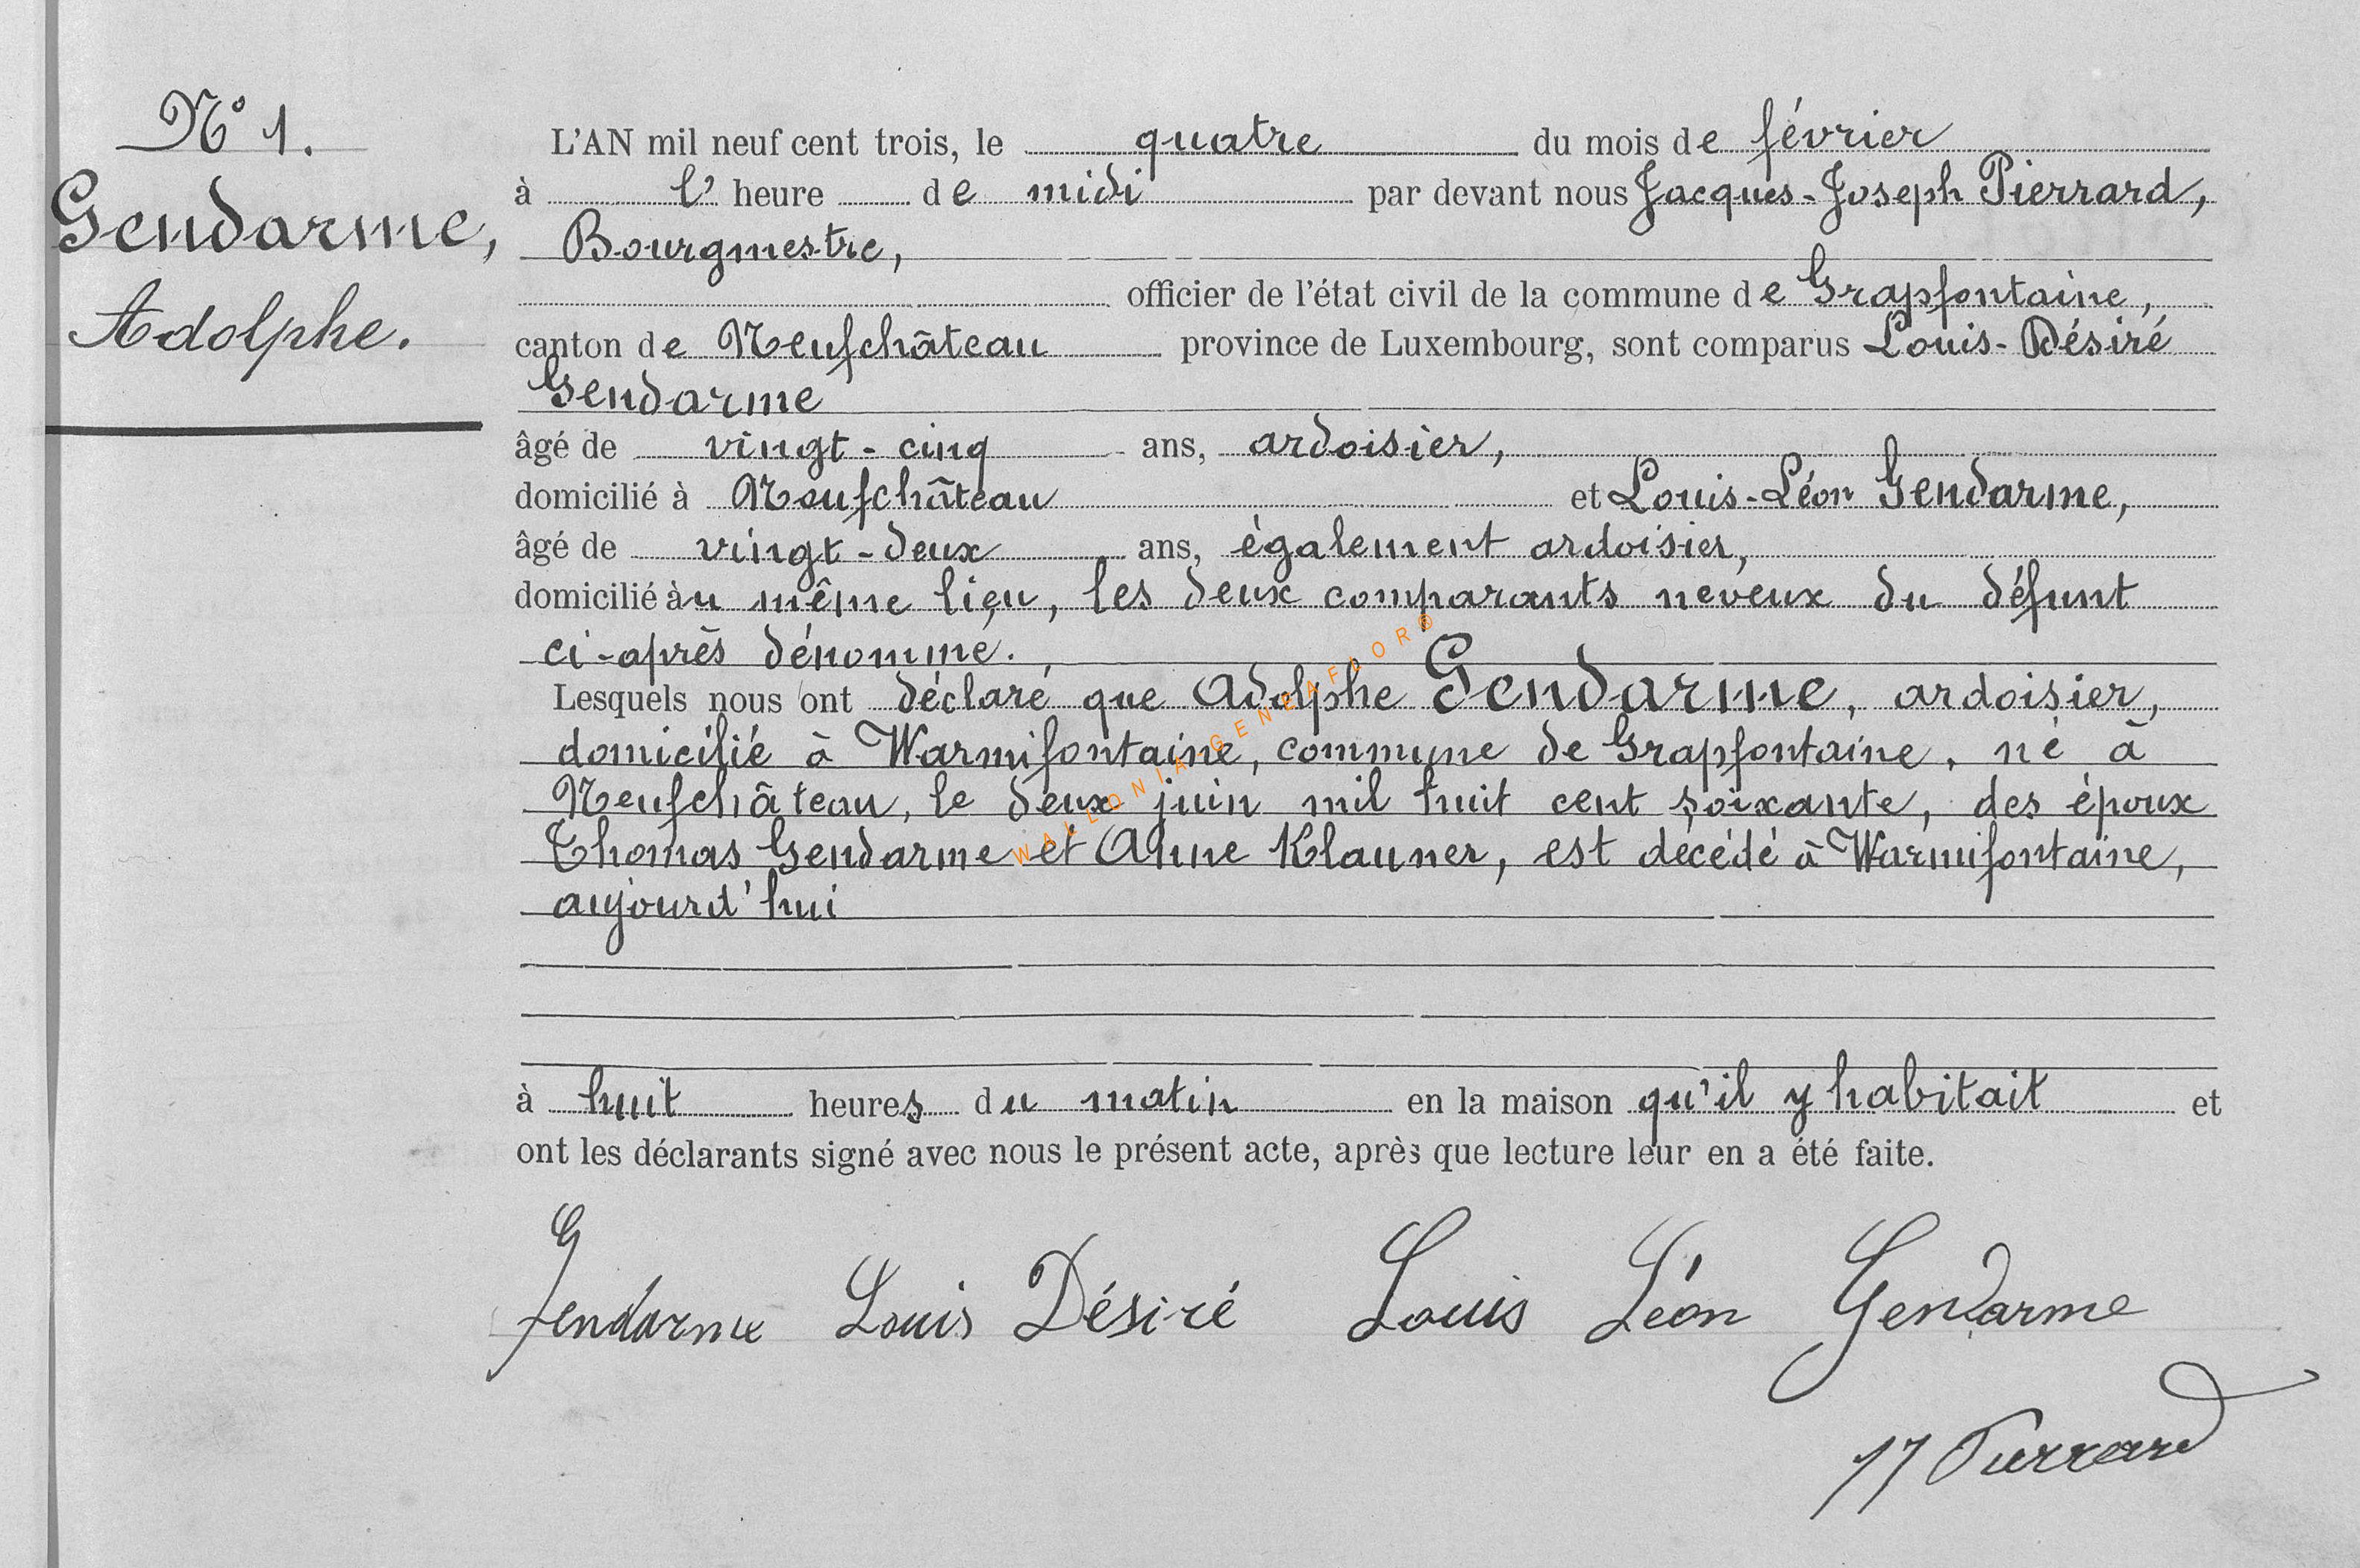 N° 1.
Gendarme,
Adolphe.
L'AN mil neuf cent trois, le quatre du mois de février
à l' heure de midi par devant nous Jacques-Joseph Pierrard,
Bourgmestre,
officier de l'état civil de la commune de Grapfontaine,
canton de Neufchâteau province de Luxembourg, sont comparus Louis-Désiré
Gendarme
âgé de vingt-cinq ans, ardoisier,
domicilié à Neufchâteau et Louis-Léon Gendarme,
âgé de vingt-deux ans, également ardoisier,
domicilié àu même lieu, les deux comparants neveux du défunt
ci-après dénommé.
Lesquels nous ont déclaré que Adolphe Gendarme, ardoisier,
domicilié à Warmifontaine, commune de Grapfontaine, né à
Neufchâteau, le deux juin mil huit cent soixante, des époux
Thomas Gendarme et Anne Klauner, est décédé à Warmifontaine,
aujourd'hui
à huit heures du matin en la maison qu'il y habitait et
ont les déclarants signé avec nous le présent acte, après que lecture leur en a été faite.
Gendarme Louis Désiré Louis Léon Gendarme
JJ Pierrard
WALLONIA GENEAFLOR®